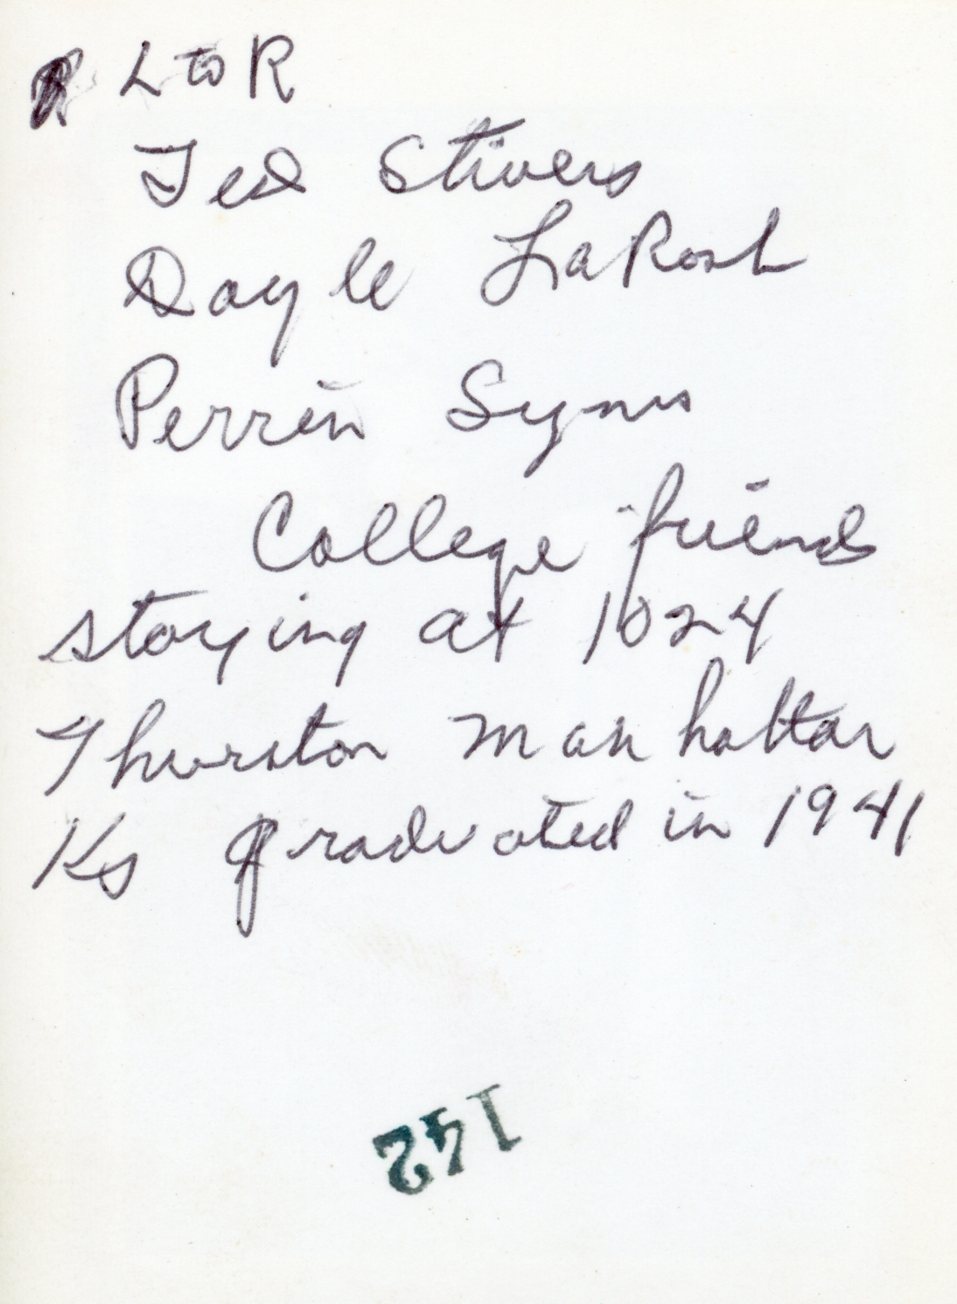 L to R
Ted Stivers
Doyle LaRosh
Perrin Syms
College friends
staying at 1024
Thurston Manhattan
Ks graduated in 1941
142